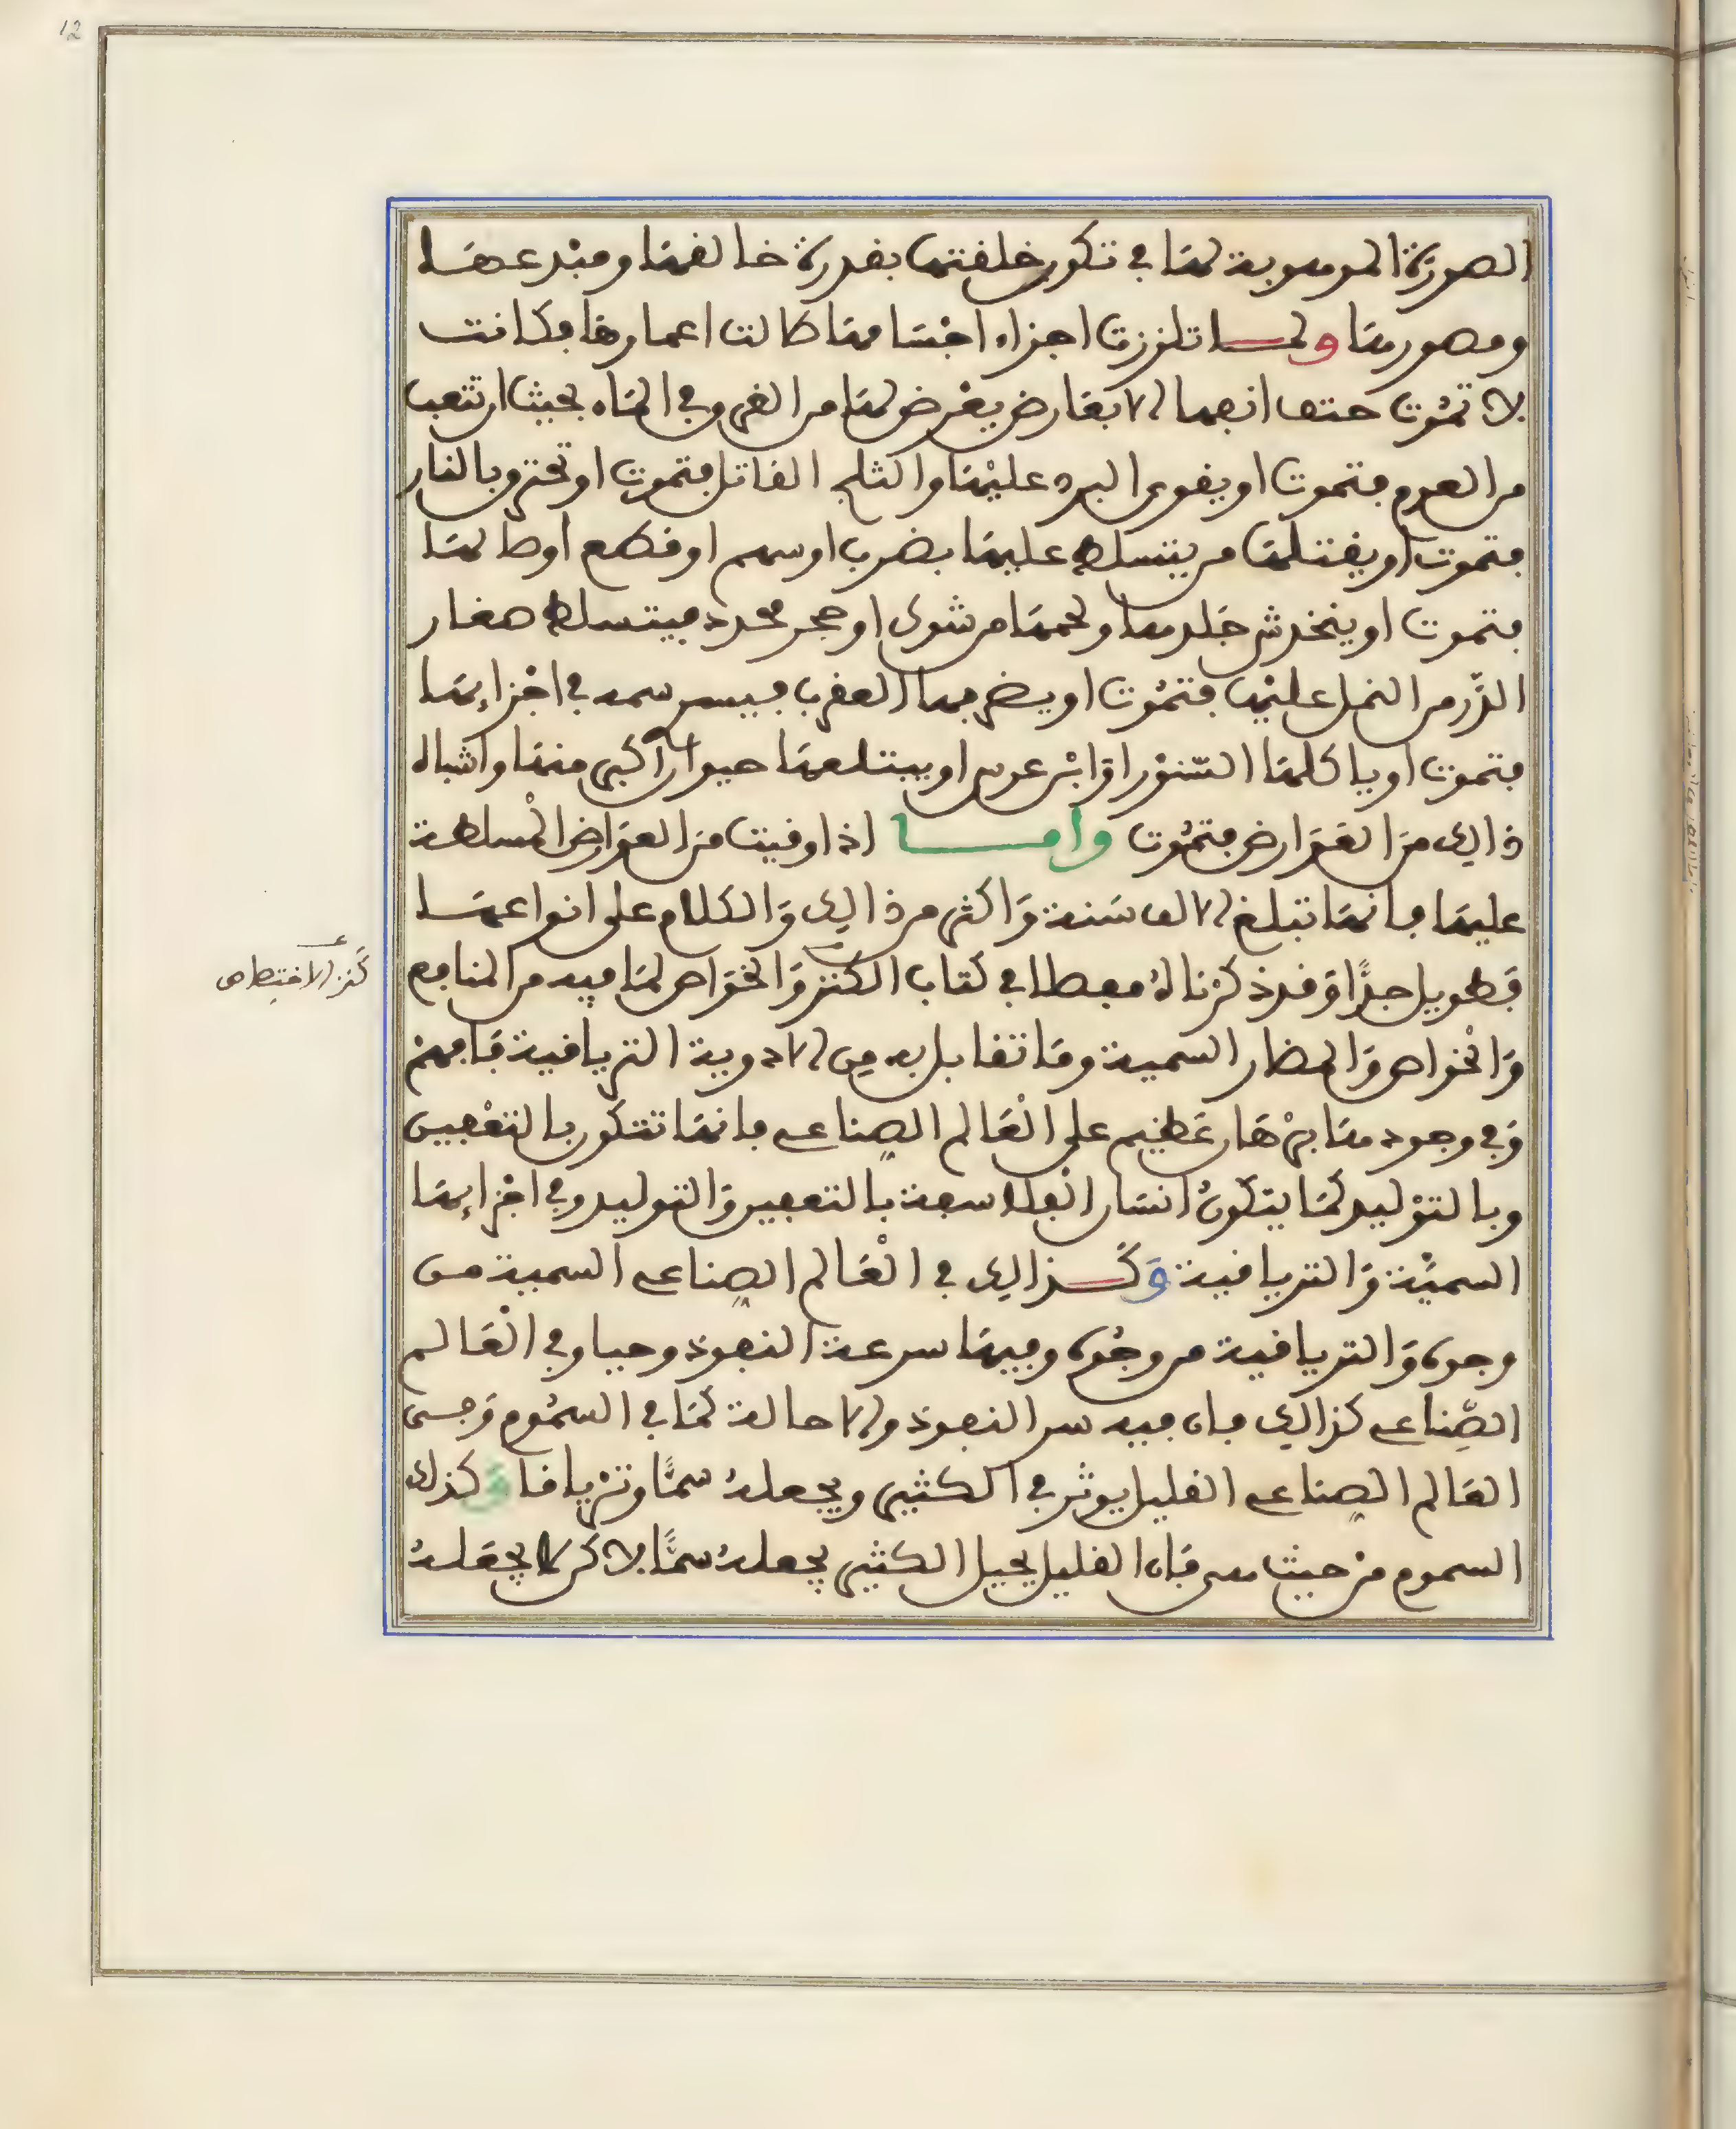 12
الصورة الموهوبة لها في تكون خلقتها بقدرة خالقها ومبدعها
ومصورها ولما تلززت اجزاء اجسامها طالت اعمارها فكانت
لا تموت حتف انفها الا بعارض يعرض لها من الغرق في الماء بحيث ان تتعب
من العوم فتموت او يقوى البرد عليها والثلج القاتل فتموت او تحترق بالنار
فتموت او يقتلها من يتسلط عليها بضرب او سهم او قطع اوصالها
فتموت او ينخدش جلدها ولحمها من شوك او حجر محدد فيتسلط صغار
الذر من النمل عليها فتموت او يضربها العقرب فيسر سمه في اجزايها
فتموت او ياكلها السنور او ابن عرس او يبتلعها حيوان اكبر منها واشباه
ذالك من العوارض فتموت واما اذا وقيت من العوارض المسلطة
عليها فانها تبلغ الالف سنة واكثر من ذالك والكلام على انواعها
فطويل جدا وقد ذكرناه مفصلا في كتاب الكنز والخواص لما فيه من المنافع
كنز الاختصاص
والخواص والمضار السمية وما تقابل به من الادوية الترياقية فافهم
وفي وجودها برهان عظيم على العالم الصناعي فانها تتكون بالتعفين
وبالتوليد كما يتكون انسان الفلاسفة بالتعفين والتوليد وفي اجزايها
السمية والترياقية وكذالك في العالم الصناعي السمية من
وجوه والترياقية من وجوه وفيها سرعة النفوذ وحيا وفي العالم
الصناعي كذالك فان فيه سر النفوذ والاحالة كما في السموم وجسى
العالم الصناعي القليل يوثر في الكثير ويجعله سما وترياقا وكذلك
السموم من حيث هى فان القليل يحيل الكثير يجعله سما لاكن لا يجعله